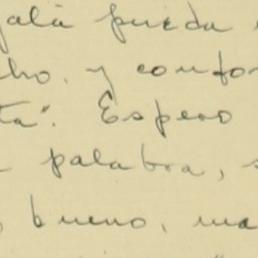 galá pueda
ho, y confor
ta". Espero
palabra, s
, bueno, ma